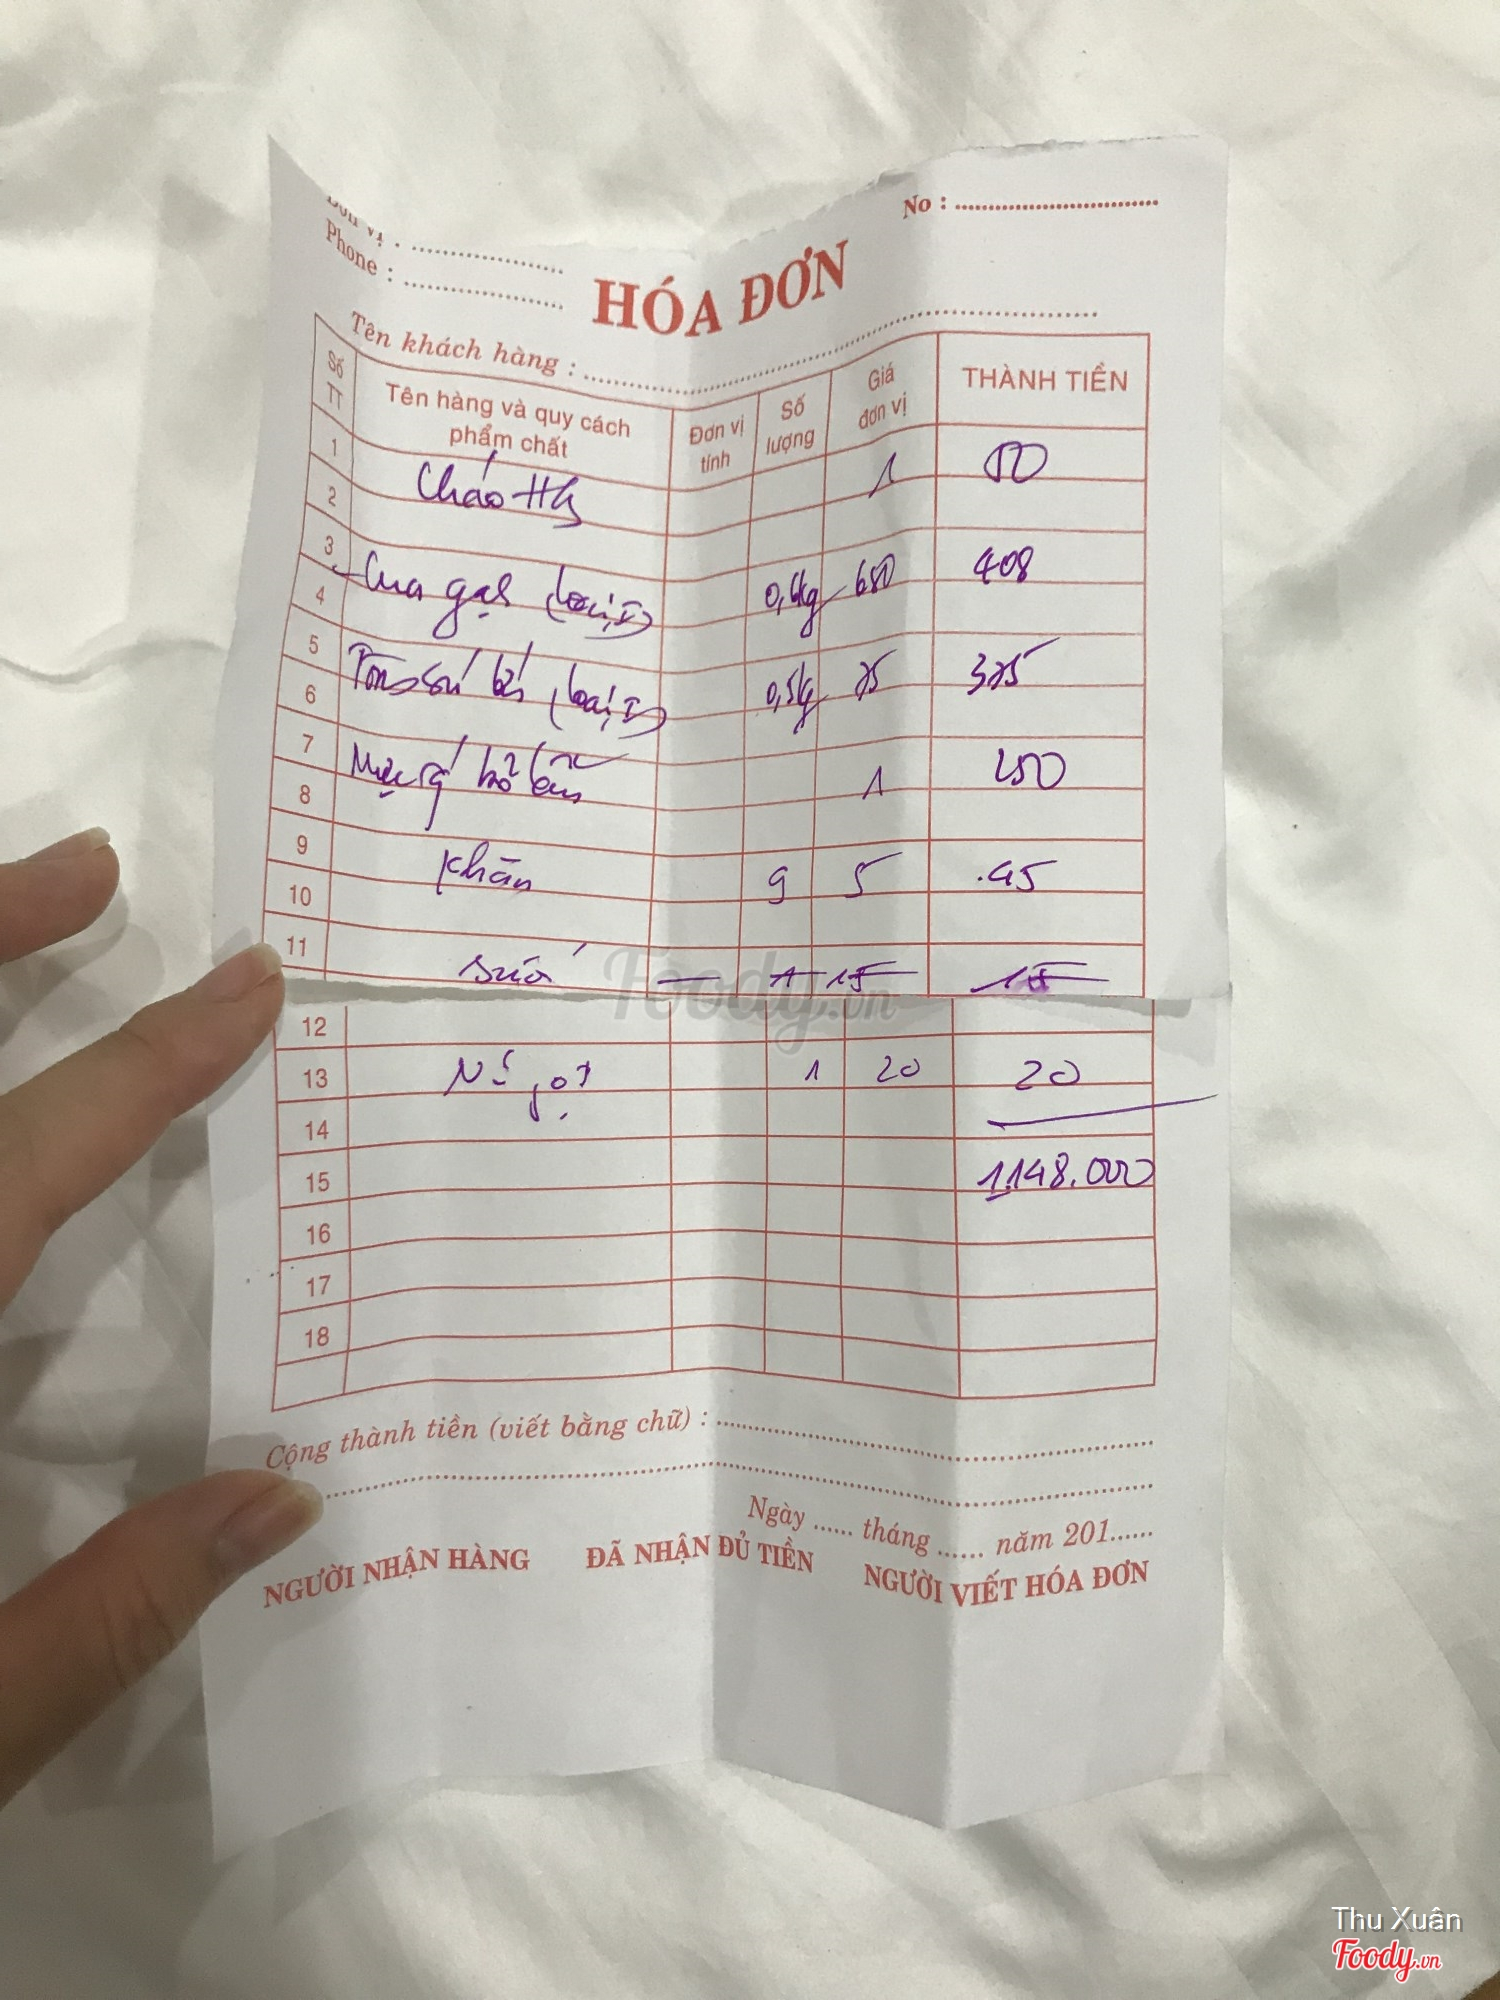 No : ...............................
Đơn vị : ........................
Phone : .........................
HÓA ĐƠN
Tên khách hàng : ...............................................................................
Số TT Tên hàng và quy cách phẩm chất Đơn vị tính Số lượng Giá đơn vị THÀNH TIỀN
1
Cháo 1
2
3
Cua gạch (loại I) 0,6kg 680 408
4
5
(loại I) 0,5kg
6
7
Mực 1
8
9
Khăn 9 5 45
10
11
1 15 15
12
13 Nc ngọt 1 20 20
14
15 1.148.000
16
17
18
Cộng thành tiền (viết bằng chữ) : ..................................................................
...............................................................................................................
Ngày ...... tháng ...... năm 201......
NGƯỜI NHẬN HÀNG ĐÃ NHẬN ĐỦ TIỀN NGƯỜI VIẾT HÓA ĐƠN
Foody.vn
Thu Xuân
Foody.vn